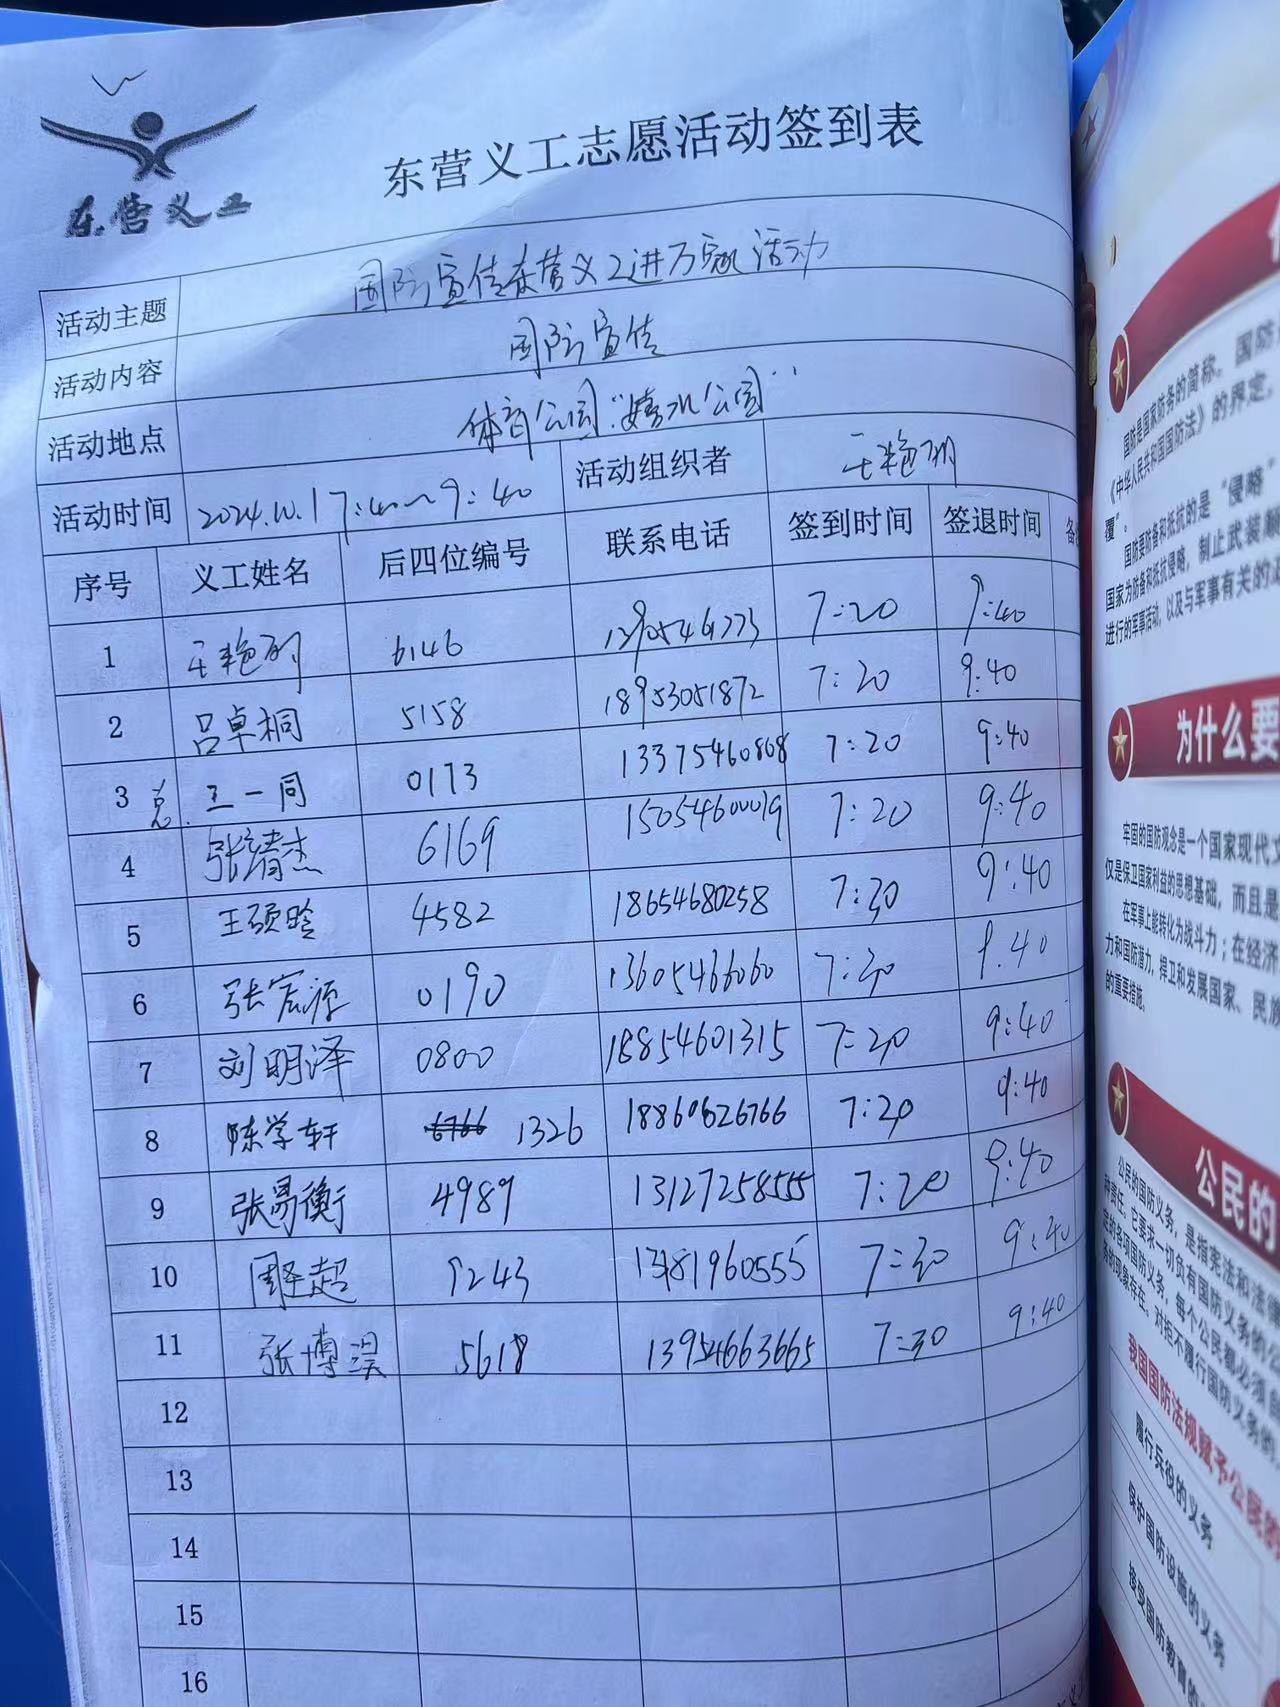 东营义工
东营义工志愿活动签到表
活动主题 国防宣传东营义工进万家活动
活动内容 国防宣传
活动地点 体育公园"嬉水公园"
活动时间 2024.10.1 7:40~9:40 活动组织者 王艳丽
序号 义工姓名 后四位编号 联系电话 签到时间 签退时间
1 王艳丽 6146 7:20 9:40
2 吕卓桐 5158 18953051872 7:20 9:40
3 王一同 0173 13375460808 7:20 9:40
4 张清杰 6169 15054600019 7:20 9:40
5 王硕晗 4582 18654680258 7:30 9:40
6 张宸源 0190 13605466060 7:20 9.40
7 刘明泽 0800 18854601315 7:20 9:40
8 陈学轩 6766 1326 18860626766 7:20 9:40
9 张易衡 4989 13127258555 7:20 9:40
10 9243 13181960555 7:30 9:40
11 张博淏 5618 13954663665 7:30 9:40
12
13
14
15
16
国防是国家防务的简称。国防
《中华人民共和国国防法》的界定,
国防要防备和抵抗的是"侵略"
国家为防备和抵抗侵略,制止武装颠
进行的军事活动,以及与军事有关的
为什么要
牢固的国防观念是一个国家现代
仅是保卫国家利益的思想基础,而且是
在军事上能转化为战斗力;在经济
力和国防潜力,捍卫和发展国家、民族
的重要措施。
公民的
公民的国防义务,是指宪法和法律
种责任,它要求一切负有国防义务的公
定的各项国防义务,每个公民都必须自
务的现象存在。对拒不履行国防义务的
我国国防法规赋予公民的
履行兵役的义务
保护国防设施的义务
接受国防教育的